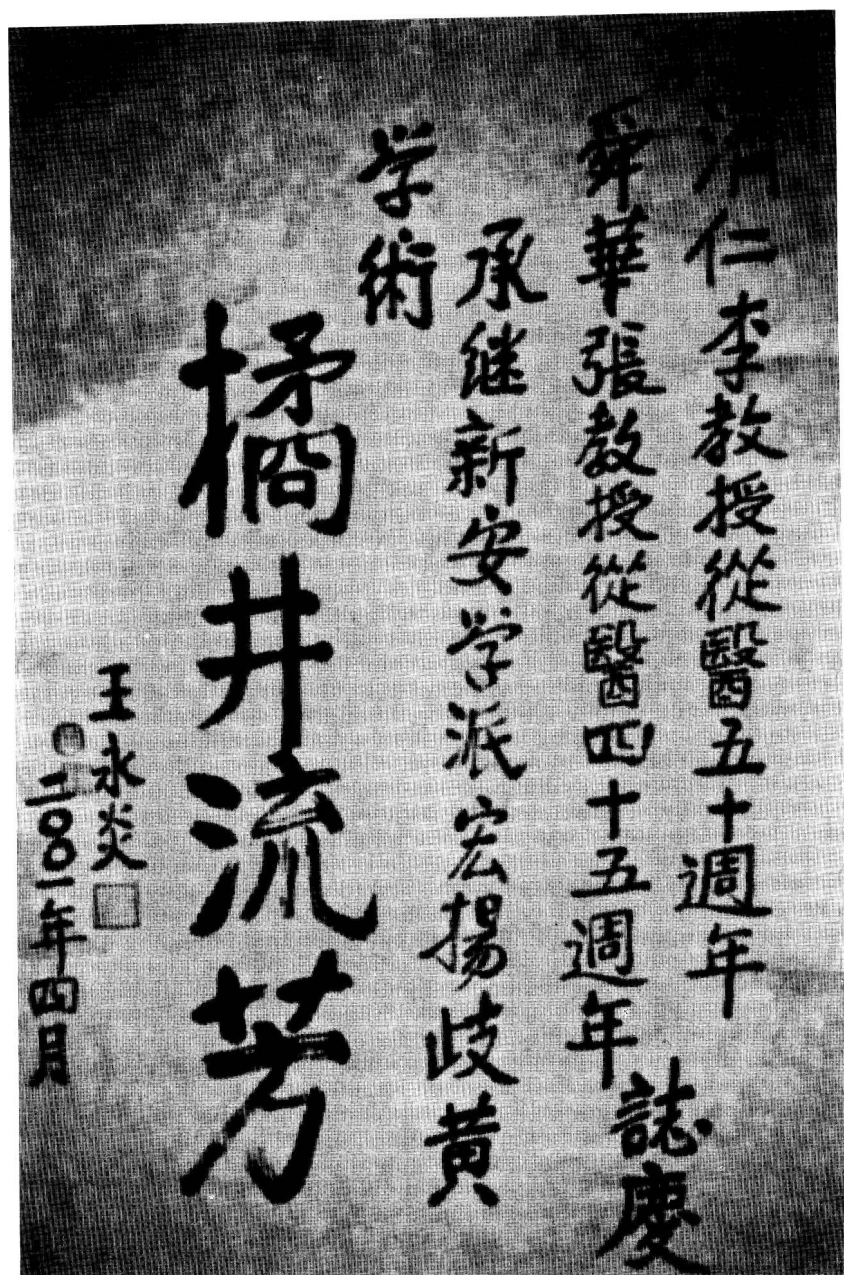 濟仁李教授從醫五十週年
舜華張教授從醫四十五週年
誌慶
承继新安学派宏揚歧黄
学術
橘井流芳
王永炎
二〇〇一年四月